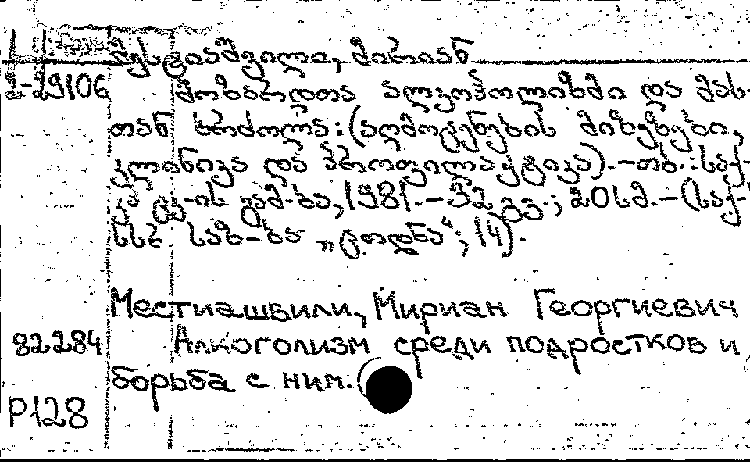 მესტიაშვილი, მირიან
2-29106 მოზარდთა ალკოჰოლიზმი და მას-
თან ბრძოლა: (აღმოცენების მიზეზები,
კლინიკა და პროფილაქტიკა).-თბ.:საქ-
კპ ცკ-ის გამ-ბა, 1981.-32 გვ.; 20სმ.-(საქ-
სსრ საზ-ბა „ცოდნა“; 14).
Местиашвили, Мириан Георгиевич
82284 Алкоголизм среди подростков и
борьба с ним.(
Р128